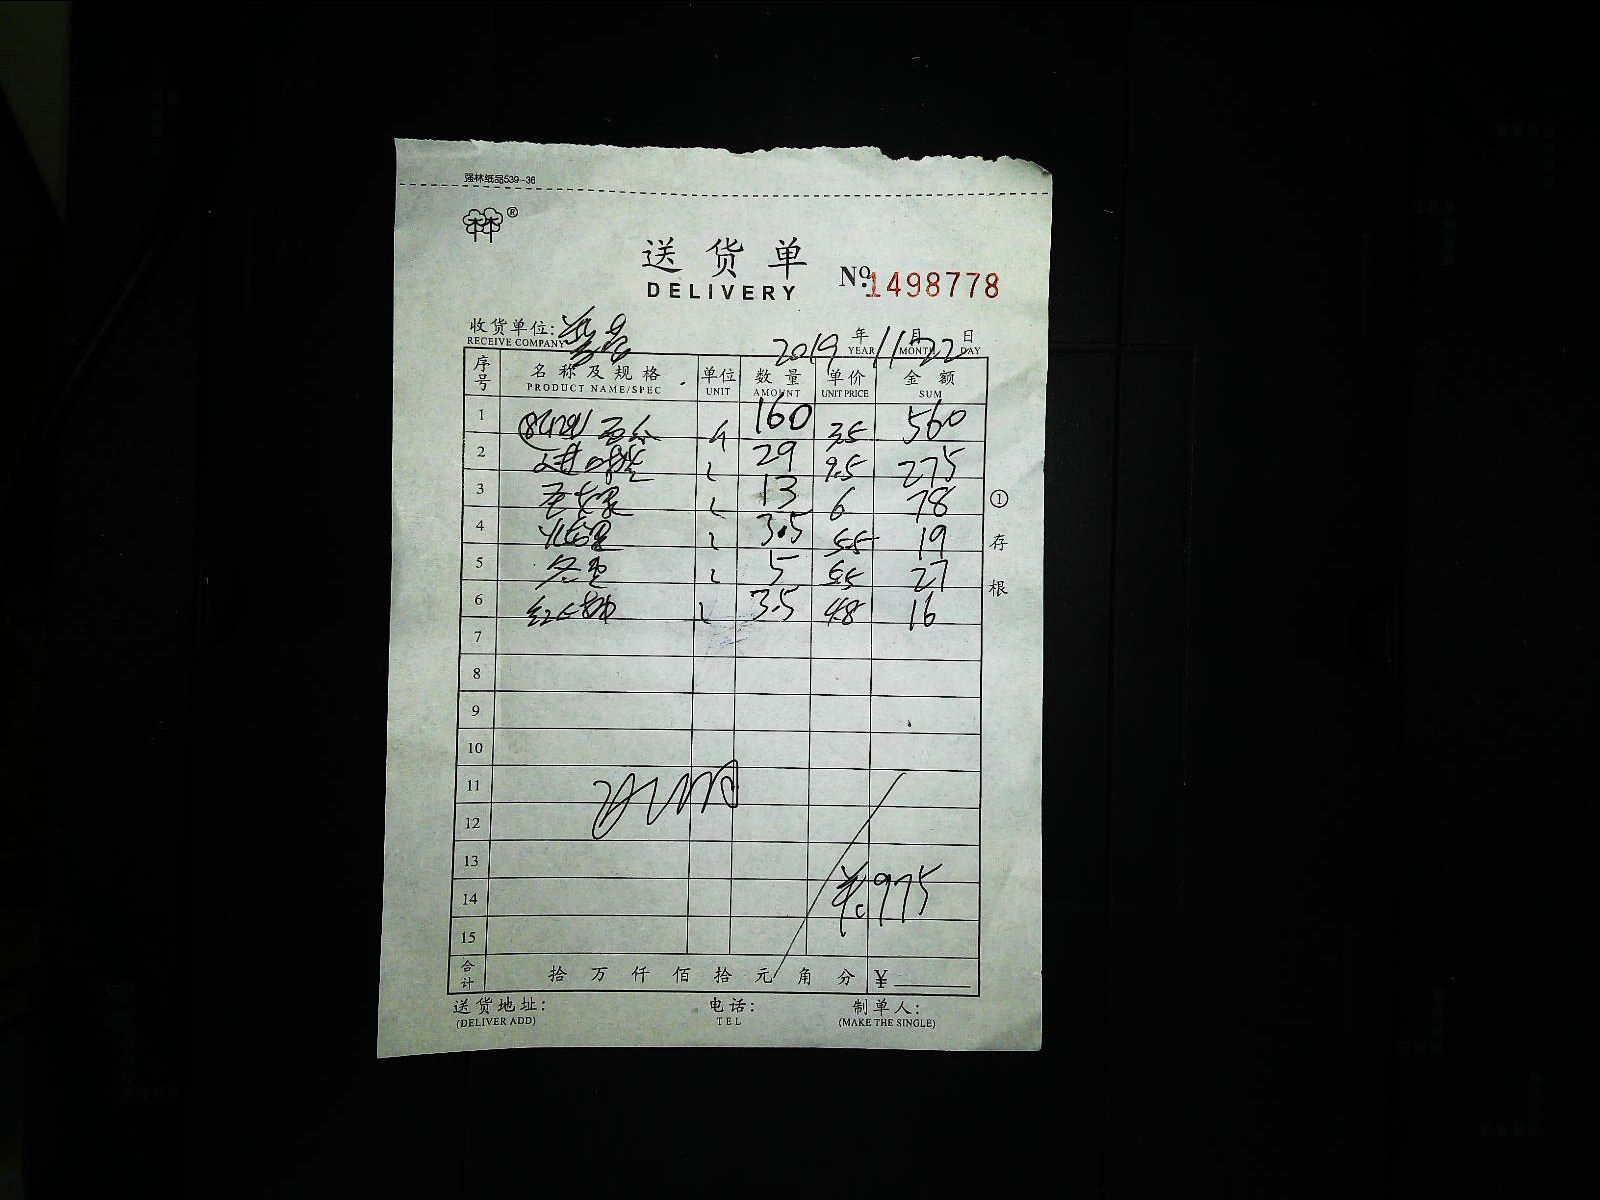 强林纸品539-36
林®
送货单
DELIVERY
№:1498778
收货单位:
RECEIVE COMPANY
2019年11月22日
YEAR MONTH DAY
序号 名称及规格 单位 数量 单价 金额
PRODUCT NAME/SPEC UNIT AMOUNT UNIT PRICE SUM
1 160 3.5 560
2 29 9.5 275
3 13 6 78
4 3.5 5.5 19
5 5 5.5 27
6 3.5 4.8 16
7
8
9
10
11
12
13
14 ¥:975
15
合计 拾万仟佰拾元角分 ¥
①存根
送货地址: 电话: 制单人:
(DELIVER ADD) TEL (MAKE THE SINGLE)